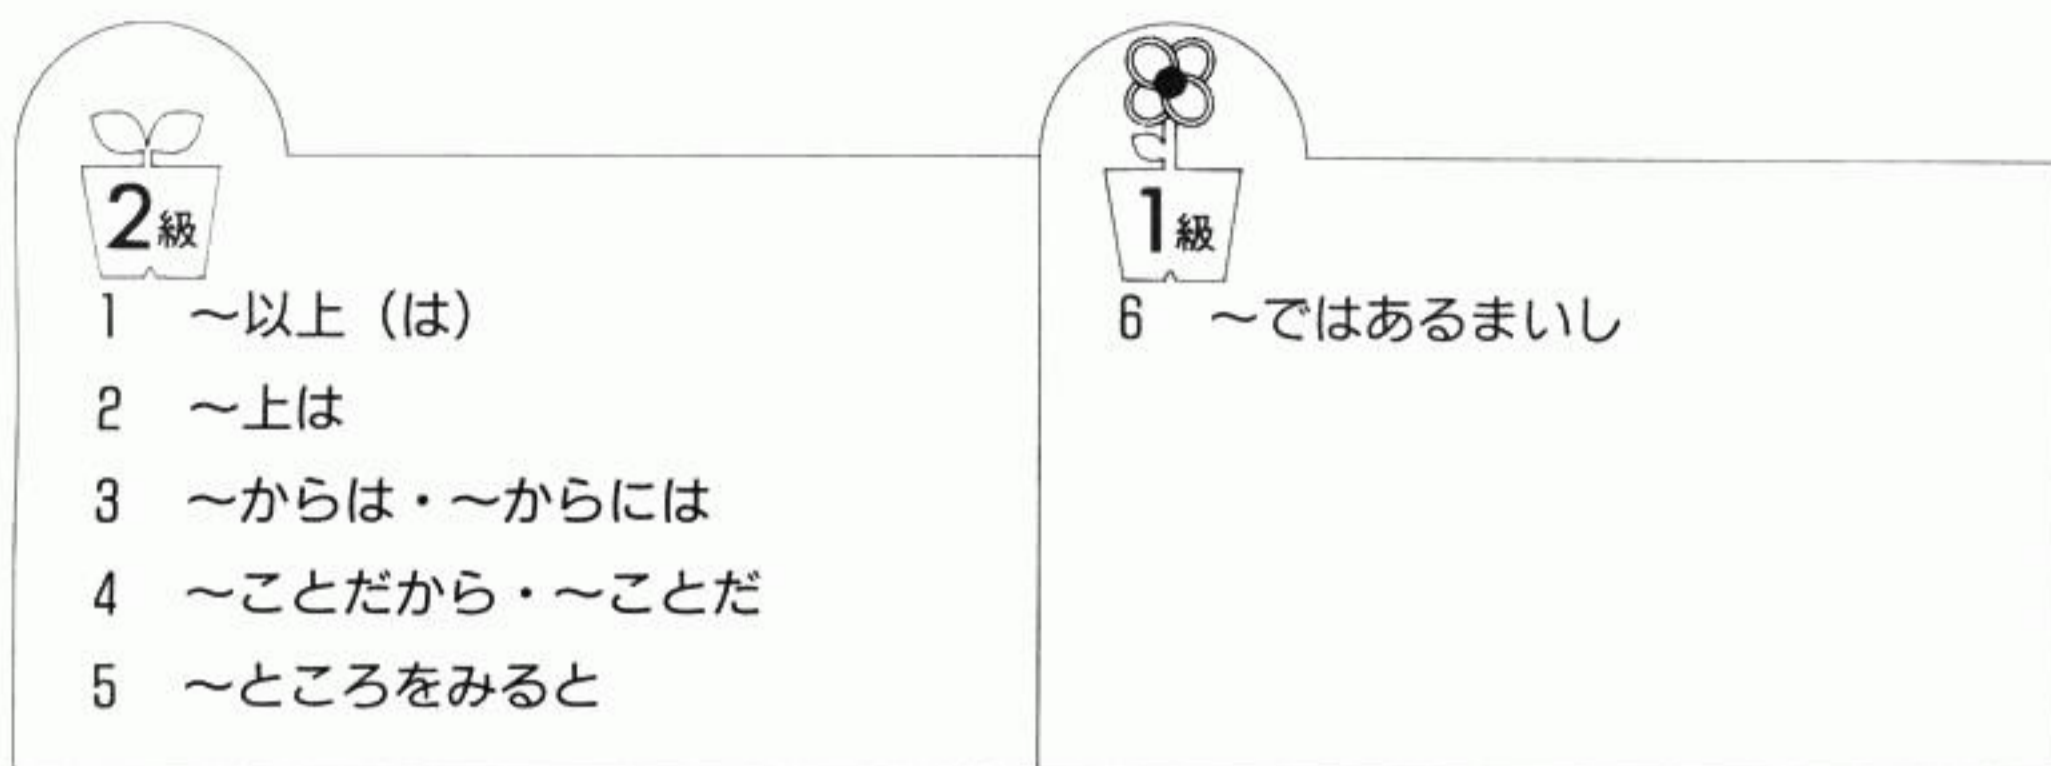 2級
1 ～以上（は）
2 ～上は
3 ～からは・～からには
4 ～ことだから・～ことだ
5 ～ところをみると
1級
6 ～ではあるまいし